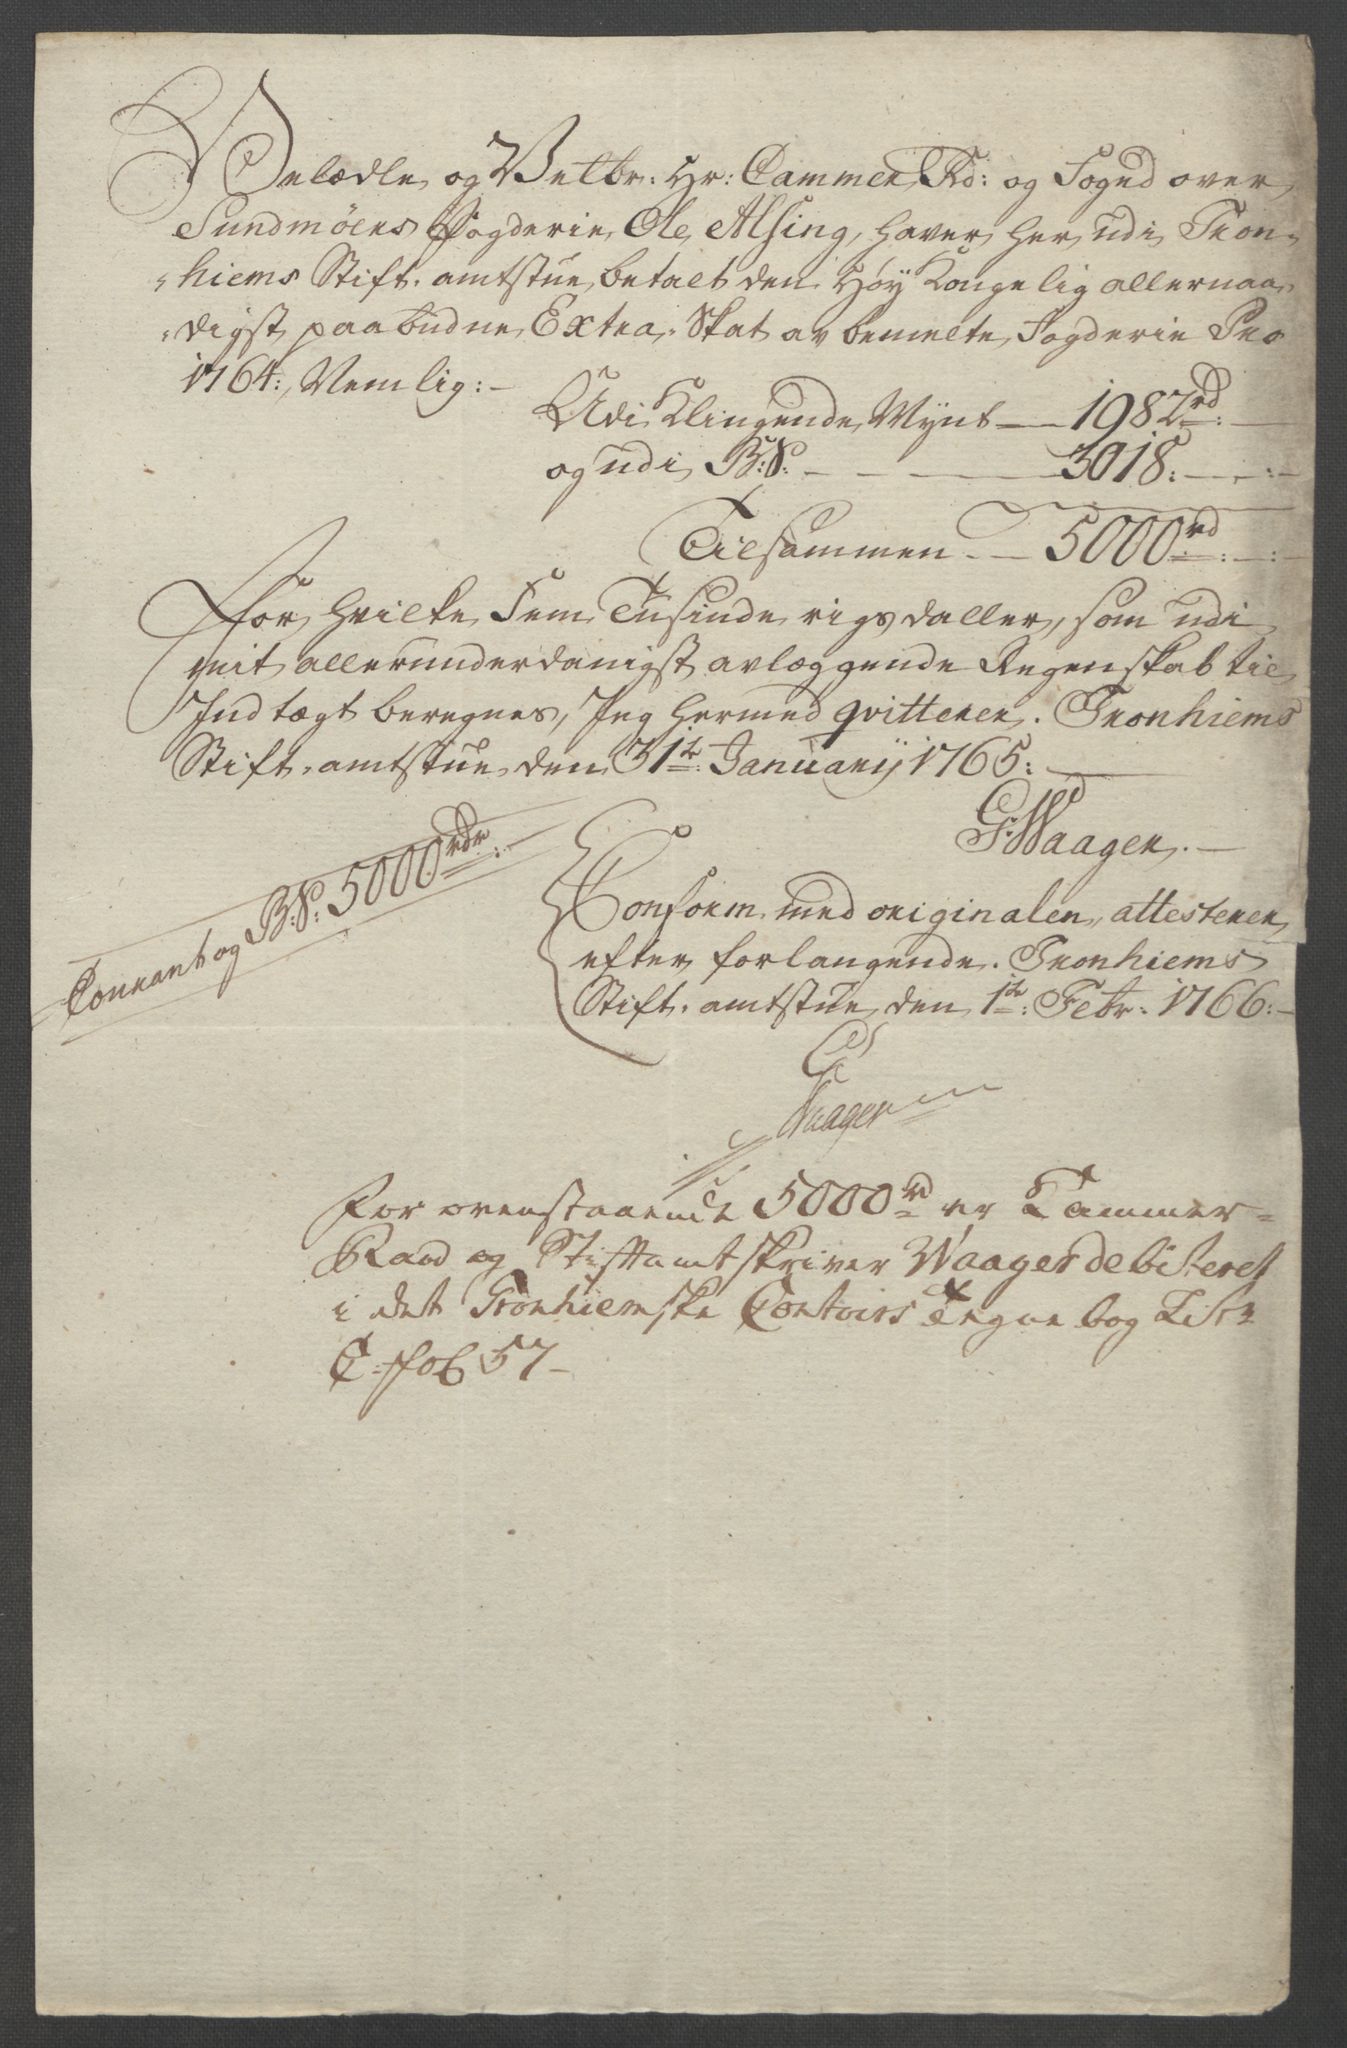 Velædle og Velbr: Hr: Cammer Rd: og Foged over
Sundmöers Fogderie, Ole Alsing, haver her udi Tron-
hiems Stift-amtstue betalt den Høy Kongelig allernaa-
digst paabudne Extra-Skat av bemelte Fogderie Pro
1764:, Nemlig:-
Udi Klingende Mynt — 1982rd:
og udi B:S: — 3018:
Tilsammen — 5000rd:
For hvilke Fem Tusinde rigsdaller, som udi
mit allerunderdanigst avlæggende Regenskab til
Indtægt beregnes, Jeg hermed qvitterer. Tronhiems
Stift-amtstue den 31te: Januarij 1765:
G: Waager.
Courant og B:S: 5000rdr:
Conform med originalen, attesterer
efter forlangende. Tronhiems
Stift-amtstue den 1te: Febr: 1766:
Waager
For ovenstaaende 5000rd er Cammer-
Raad og Stiftamtskriver Waager debiteret
i det Tronhiemske Contoirs Tegnebog Litr
C: fol 57